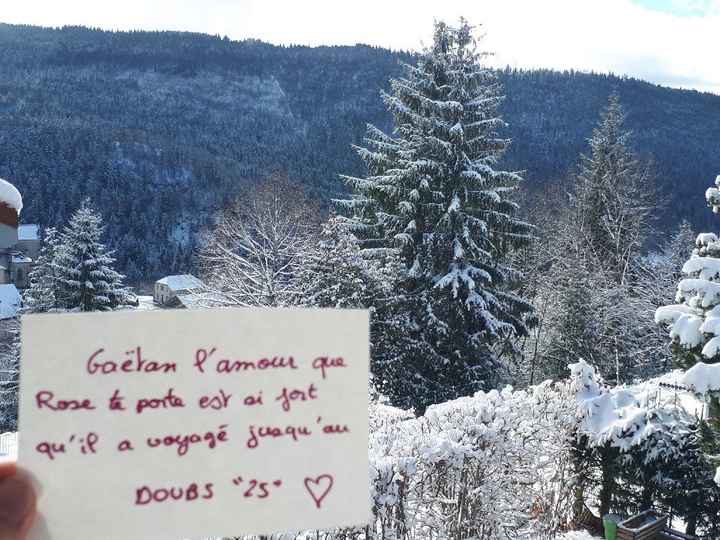 Gaëtan l'amour que
Rose te porte est si fort
qu'il a voyagé jusqu'au
DOUBS "25" ♡